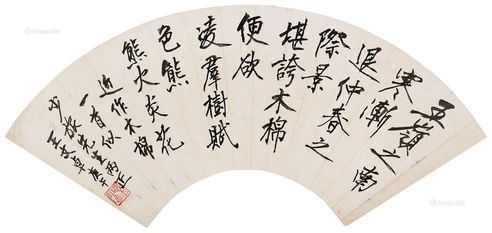 五嶺之南
寒漸
退仲春之
際景
堪誇木棉
便欲
凌羣樹賦
色熊
熊火炎花
近作木棉
一首似
先生兩正
庚午